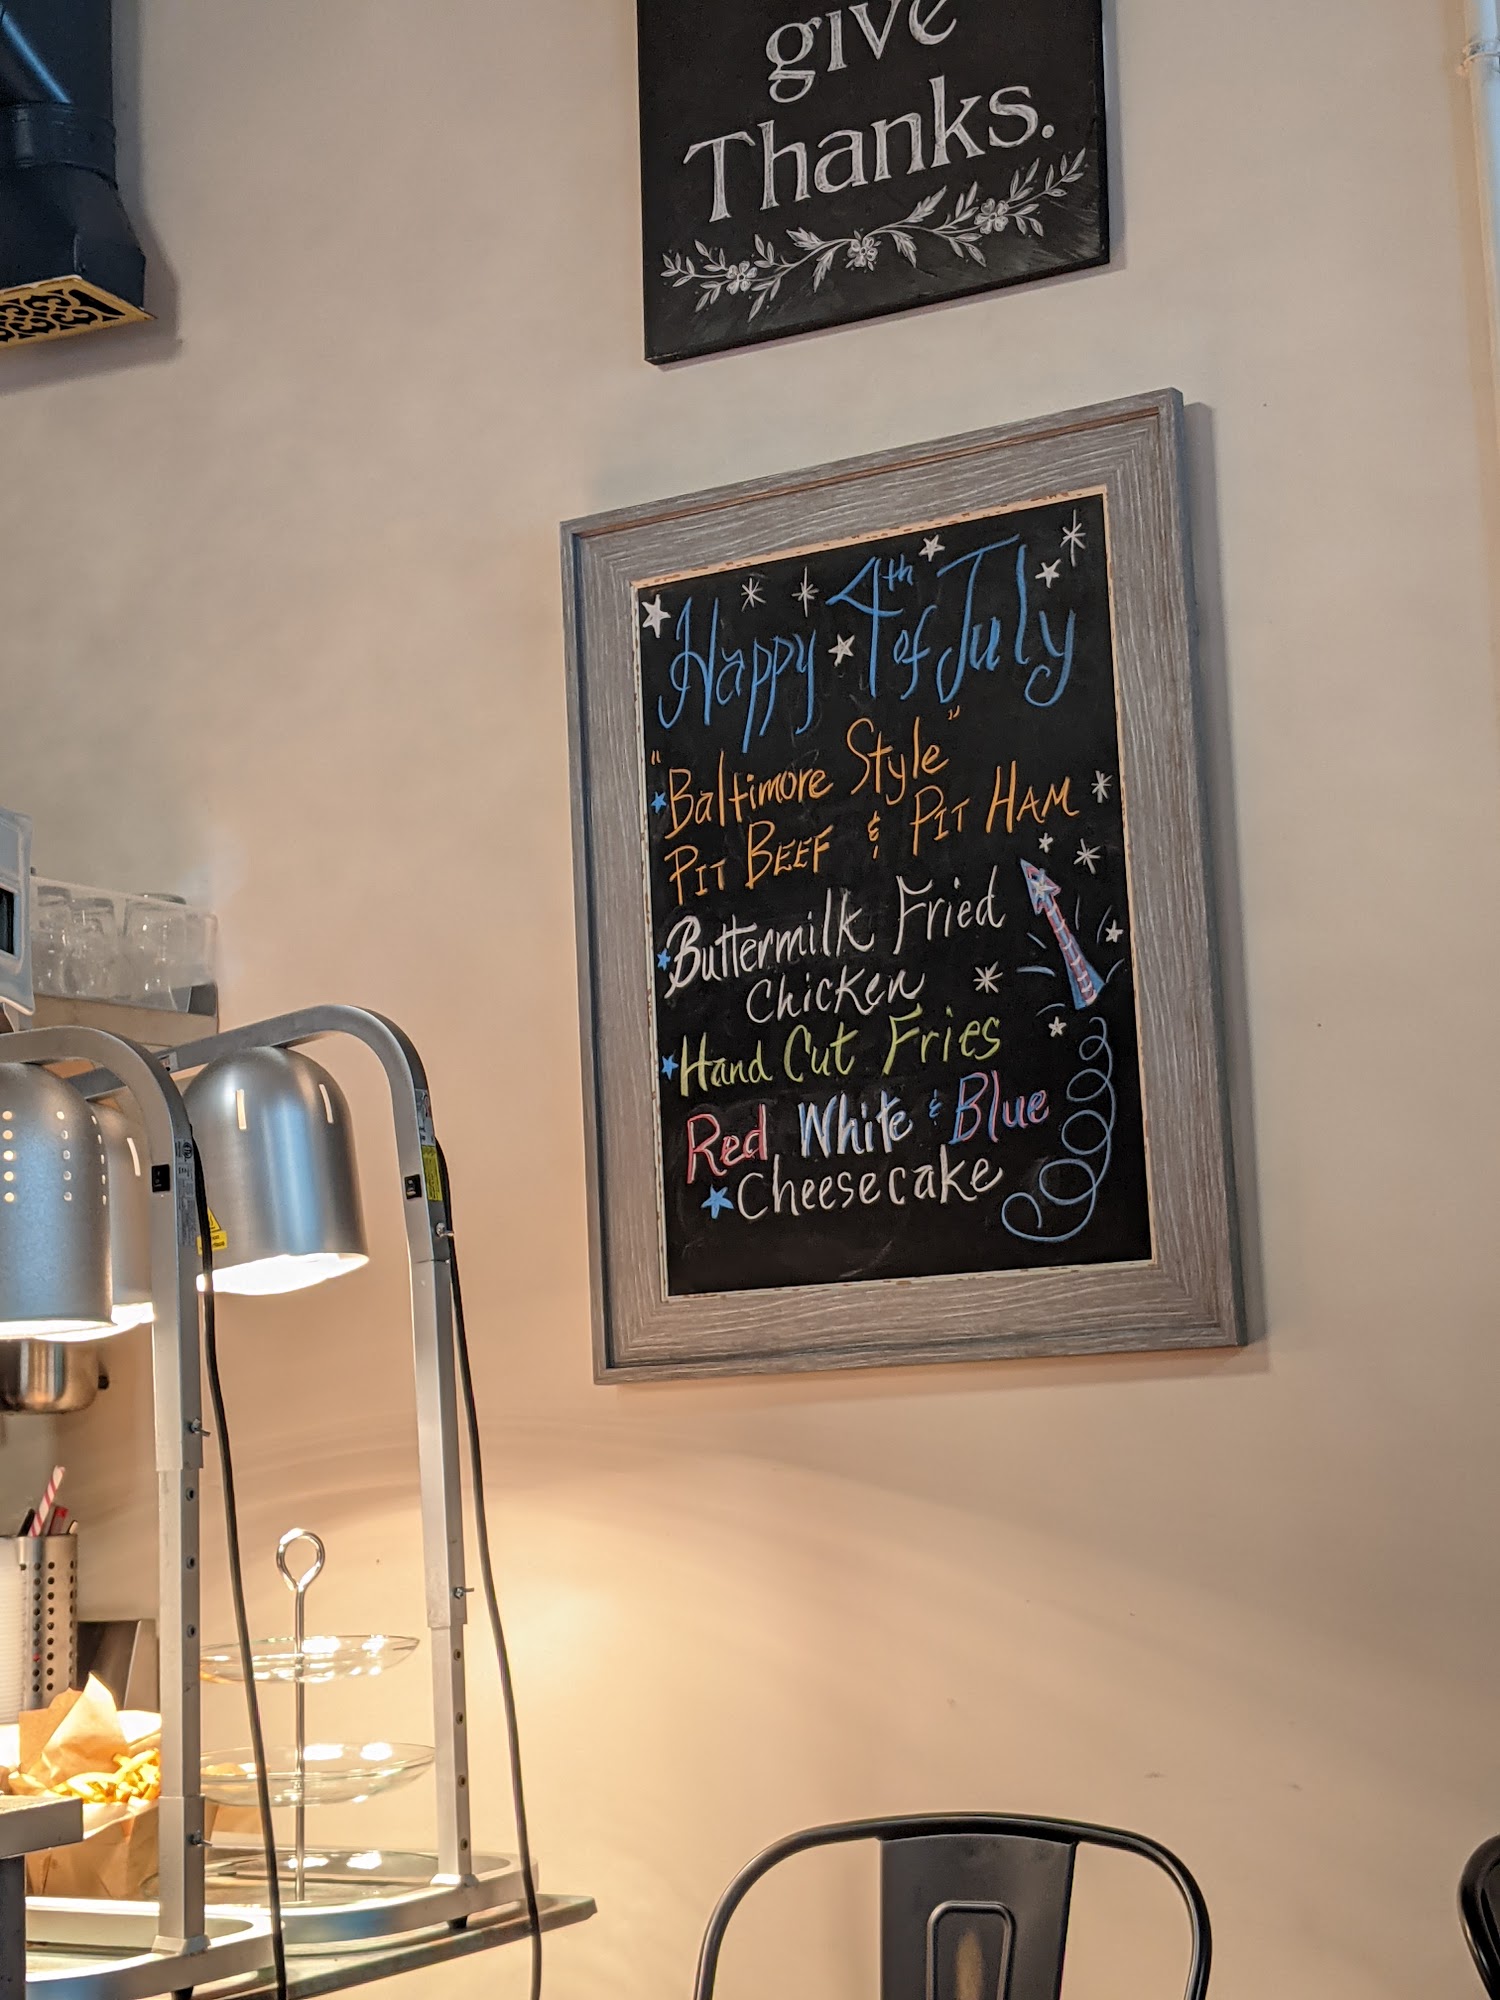 give
Thanks.
Happy 4th of July
"Baltimore Style"
PIT BEEF & PIT HAM
Buttermilk Fried
Chicken
Hand Cut Fries
Red White & Blue
Cheesecake